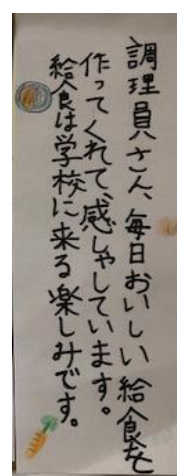 調理員さん、毎日おいしい給食を
作ってくれて、感しゃしています。
給食は学校に来る楽しみです。